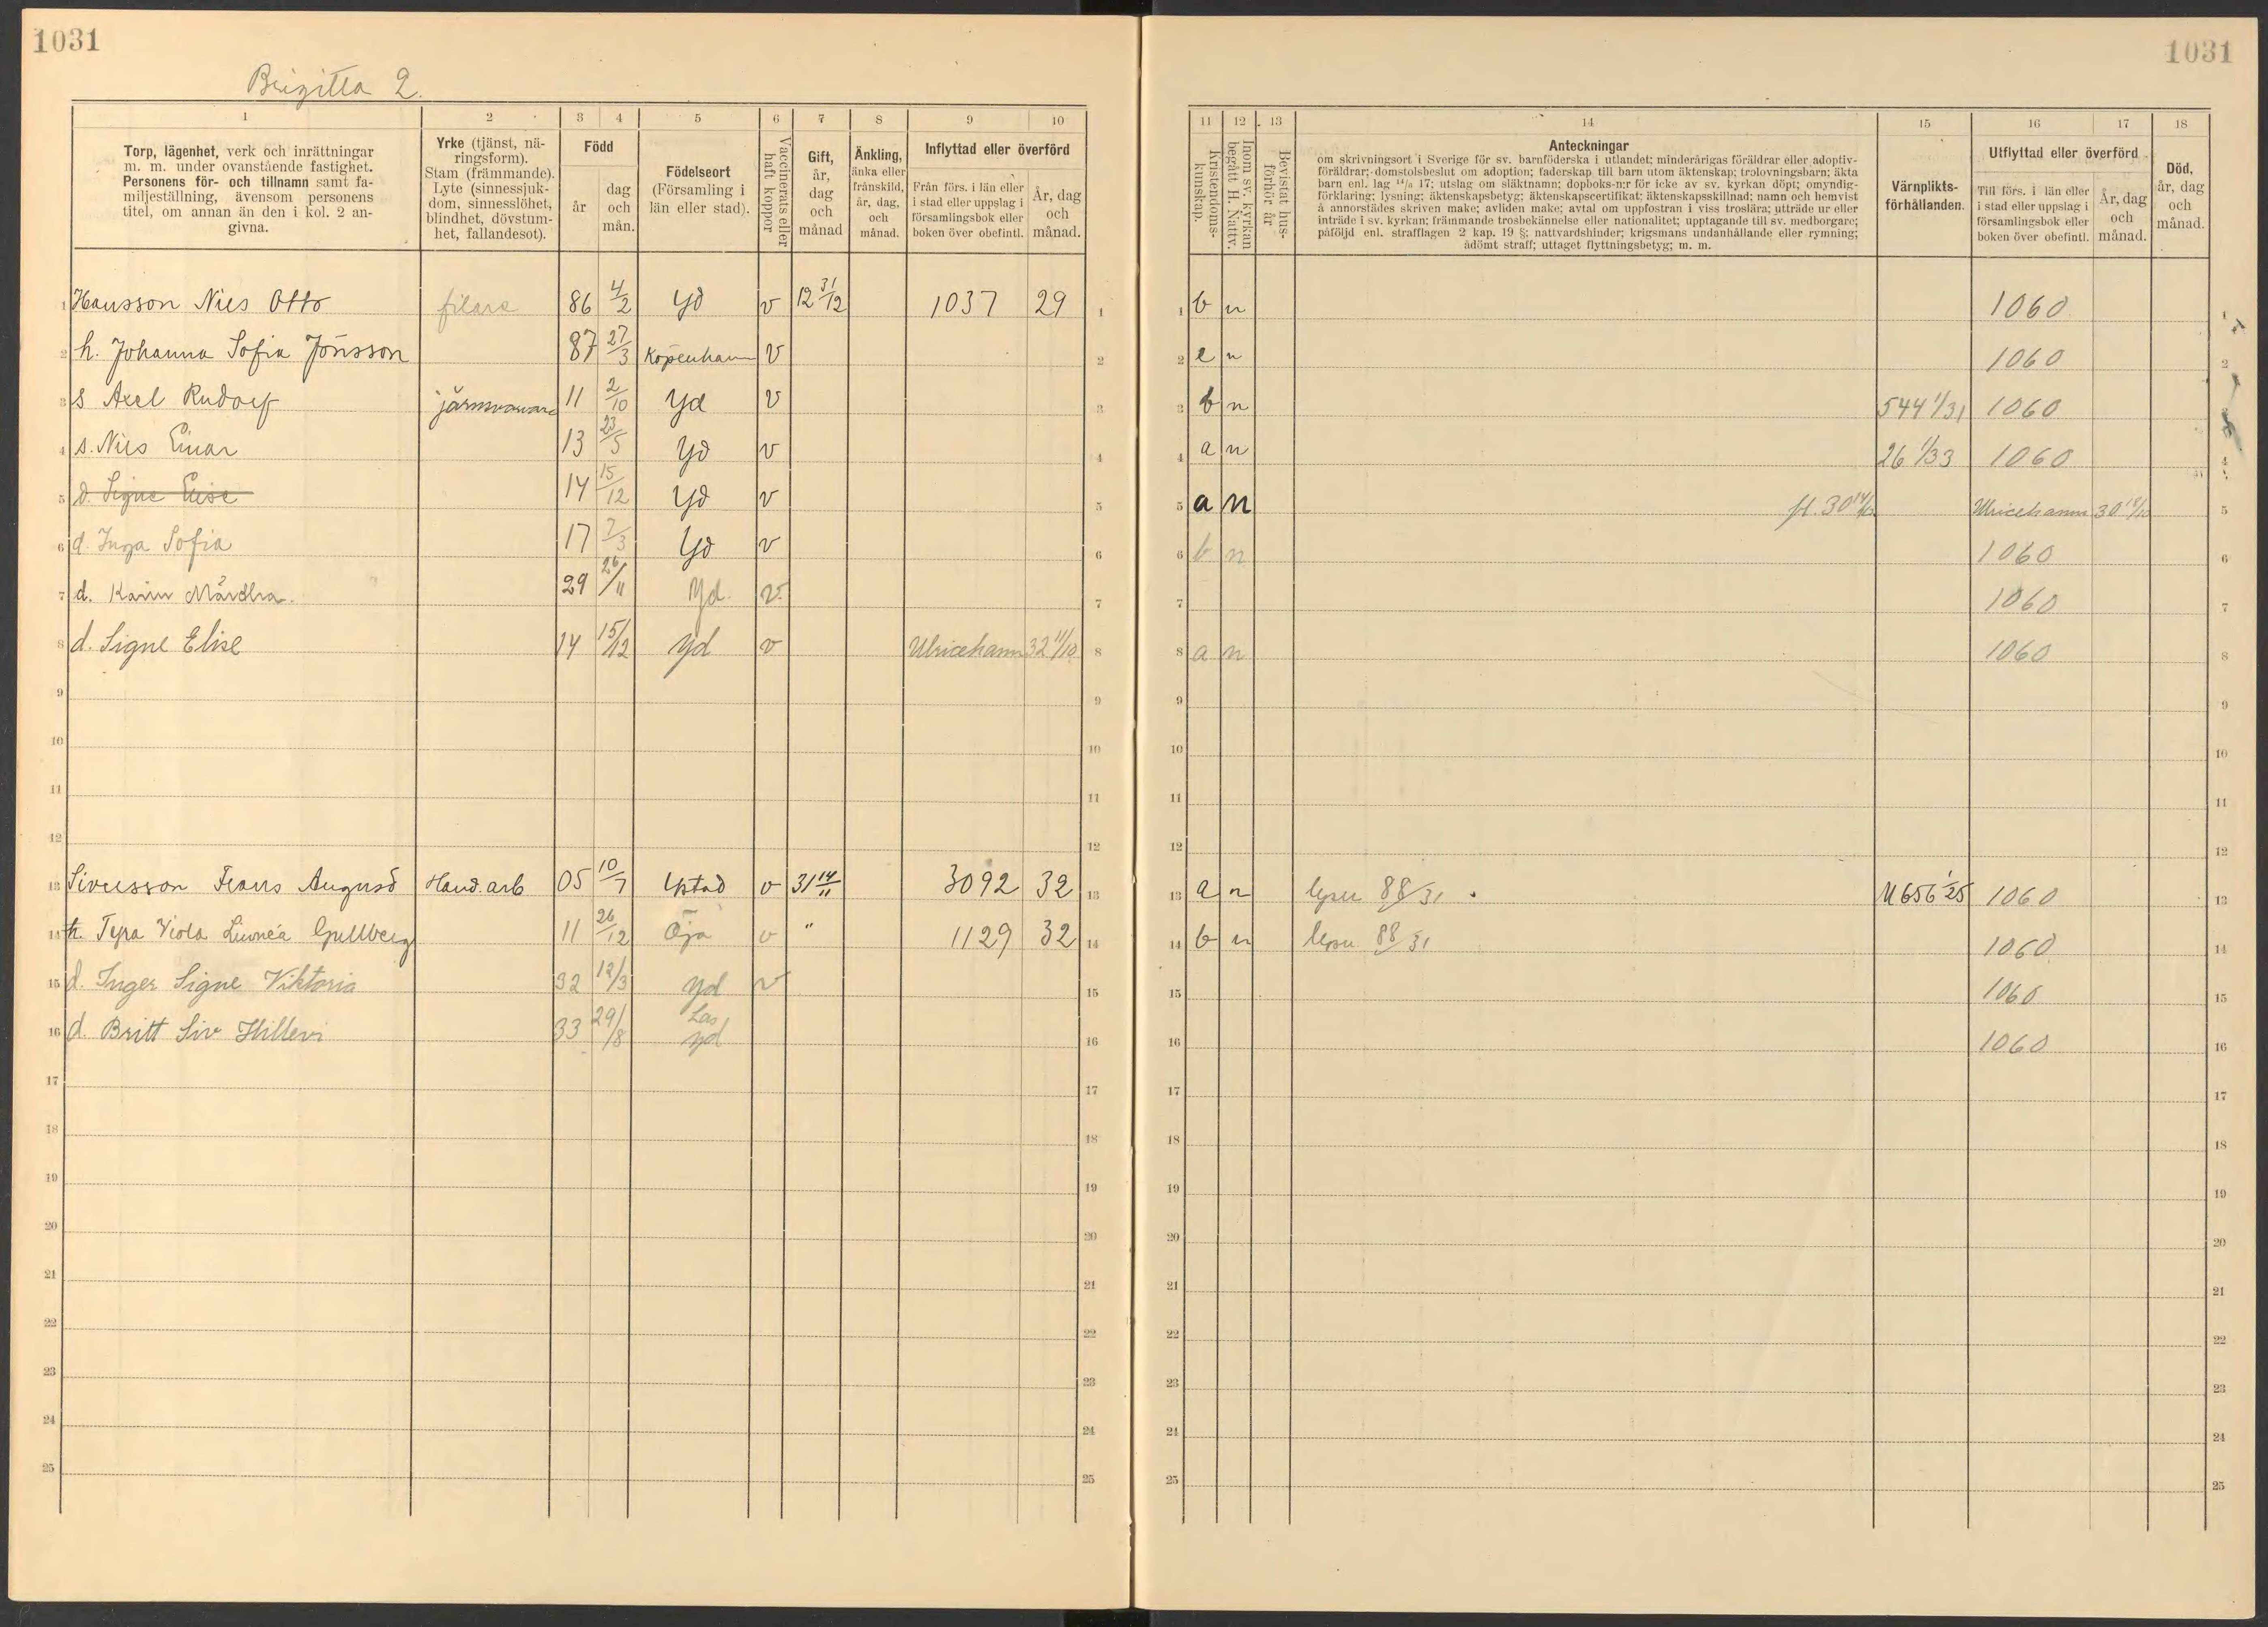 1031
1031
Brigitta 2.
1
2
3
4
5
6
7
8
9
10
Torp, lägenhet, verk och inrättningar
m. m. under ovanstående fastighet.
Personens för- och tillnamn samt fa-
miljeställning, ävensom personens
titel, om annan än den i kol. 2 an-
givna.
Yrke (tjänst, nä-
ringsform).
Stam (främmande).
Lyte (sinnessjuk-
dom, sinnesslöhet,
blindhet, dövstum-
het, fallandesot).
Född
år
dag
och
mån.
Födelseort
(Församling i
län eller stad).
Vaccinerats eller
haft koppor
Gift,
år,
dag
och
månad
Änkling,
änka eller
frånskild,
år, dag,
och
månad.
Inflyttad eller överförd
Från förs. i län eller
i stad eller uppslag i
församlingsbok eller
boken över obefintl.
År, dag
och
månad.
11
12
13
14
15
16
17
18
Kristendoms-
kunskap.
Inom sv. kyrkan
begått H. Nattv.
Bevistat hus-
förhör år
Anteckningar
om skrivningsort i Sverige för sv. barnföderska i utlandet; minderårigas föräldrar eller adoptiv-
föräldrar; domstolsbeslut om adoption; faderskap till barn utom äktenskap; trolovningsbarn; äkta
barn enl. lag 14/6 17; utslag om släktnamn; dopboks-n:r för icke av sv. kyrkan döpt; omyndig-
förklaring; lysning; äktenskapsbetyg; äktenskapscertifikat; äktenskapsskillnad; namn och hemvist
å annorstädes skriven make; avliden make; avtal om uppfostran i viss troslära; utträde ur eller
inträde i sv. kyrkan; främmande trosbekännelse eller nationalitet; upptagande till sv. medborgare;
påföljd enl. strafflagen 2 kap. 19 §; nattvardshinder; krigsmans undanhållande eller rymning;
ådömt straff; uttaget flyttningsbetyg; m. m.
Värnplikts-
förhållanden.
Utflyttad eller överförd
Till förs. i län eller
i stad eller uppslag i
församlingsbok eller
boken över obefintl.
År, dag
och
månad.
Död,
år, dag
och
månad.
1 Hansson Nils Otto filare 86 4/2 Yd v 12 31/12 1037 29 1 1 b n 1060 1
2 h. Johanna Sofia Jönsson 87 27/3 Köpenhamn v 2 2 e n 1060 2
3 s Axel Rudolf 11 2/10 Yd v 3 3 b n 544 1/31 1060
4 s. Nils Einar 13 23/5 Yd v 4 4 a n 26 1/33 1060 4
5 d. Signe Elise 14 15/12 Yd v 5 5 a n fl. 30 Ulricehamn 30 18/10 5
6 d. Inga Sofia 17 7/3 Yd v 6 6 b n 1060 6
7 d. Karin Märtha 29 26/11 Yd. v. 7 7 1060 7
8 d. Signe Elise 14 15/12 Yd v Ulricehamn 32 11/10 8 8 a n 1060 8
9 9 9 9
10 10 10 10
11 11 11 11
12 12 12 12
13 Sivertsson Frans August Hand.arb 05 10/7 Ystad v 31 14/11 3092 32 13 13 a n lysn 88/31 U 656 1/25 1060 13
14 h. Tyra Viola Linnéa Gullberg 11 26/12 Öja v " 1129 32 14 14 b n lysn 88/31 1060 14
15 d. Inger Signe Viktoria 32 12/3 Yd v 15 15 1060 15
16 d. Britt Siv Hillevi 33 29/8 Las Yd 16 16 1060 16
17 17 17 17
18 18 18 18
19 19 19 19
20 20 20 20
21 21 21 21
22 22 22 22
23 23 23 23
24 24 24 24
25 25 25 25